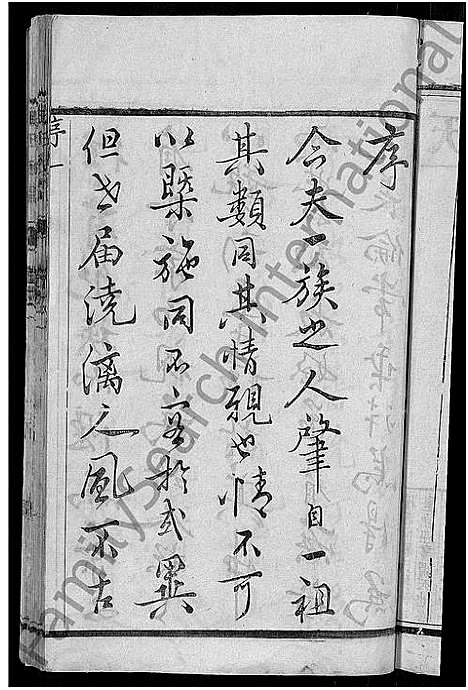 序
今夫一族之人肇自一祖
其類同其情親也情不可
以槩施同不容於或異
但世届澆漓人風不古
序一
天
FamilySearch International